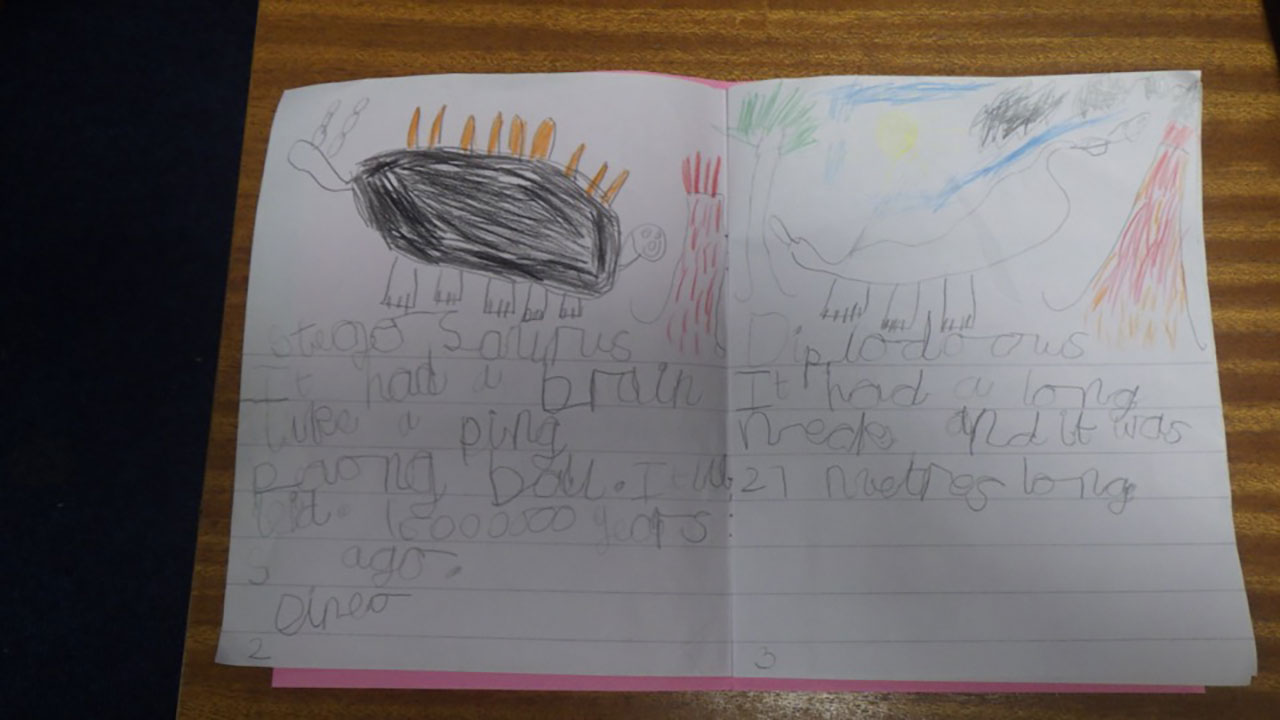 Stego Saurus
It had a brain
like a ping
pong ball. It
15000000 years
ago.
2
Diplodocus
It had a long
neck and it was
27 metres long
3